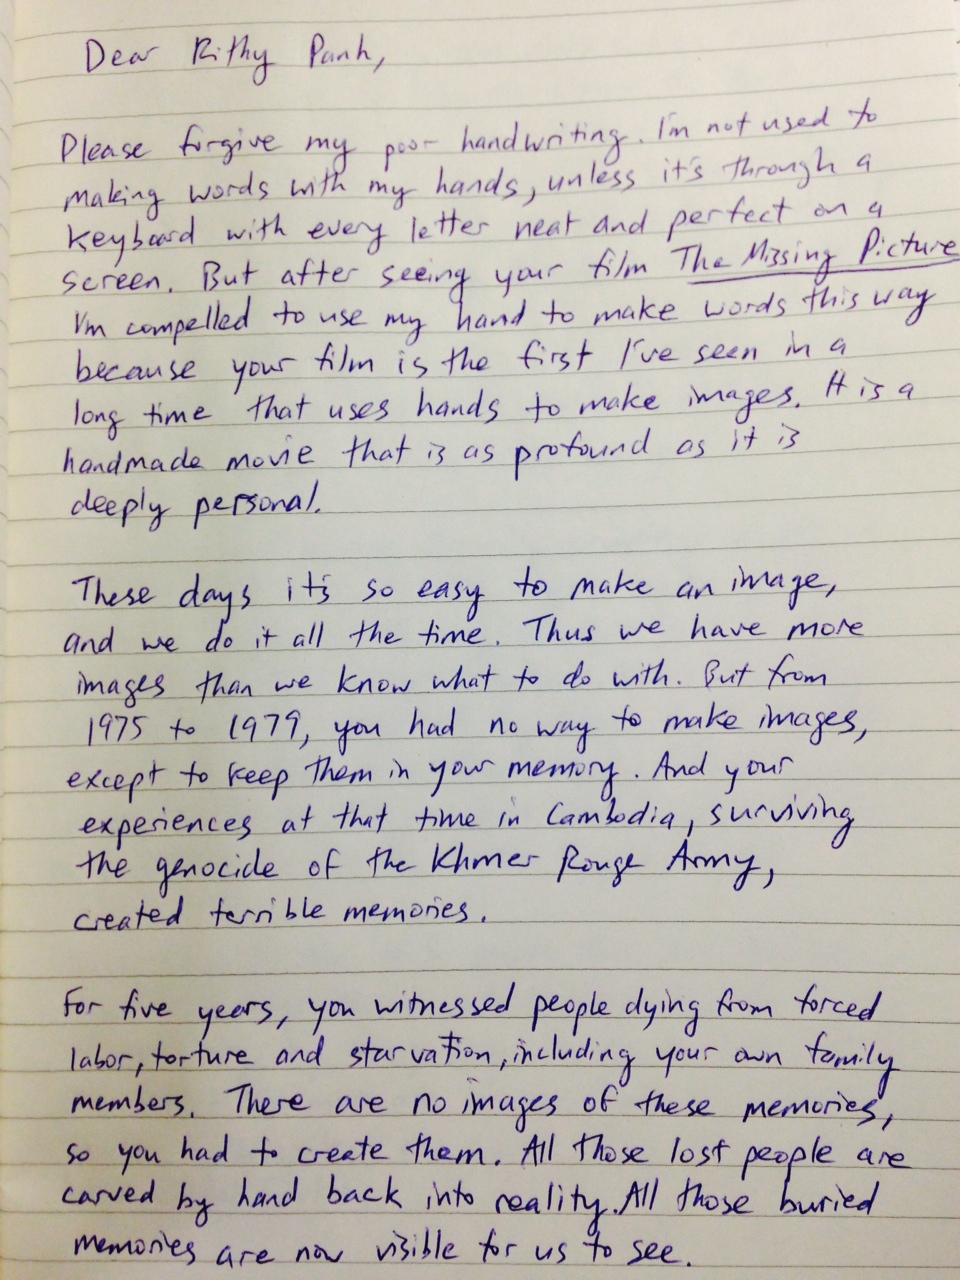 Dear Rithy Panh,
Please forgive my poor handwriting. I'm not used to
making words with my hands, unless it's through a
keyboard with every letter neat and perfect on a
screen. But after seeing your film The Missing Picture
I'm compelled to use my hand to make words this way
because your film is the first I've seen in a
long time that uses hands to make images. It is a
handmade movie that is as profound as it is
deeply personal.
These days it's so easy to make an image,
and we do it all the time. Thus we have more
images than we know what to do with. But from
1975 to 1979, you had no way to make images,
except to keep them in your memory. And your
experiences at that time in Cambodia, surviving
the genocide of the Khmer Rouge Army,
created terrible memories.
For five years, you witnessed people dying from forced
labor, torture and starvation, including your own family
members. There are no images of these memories,
so you had to create them. All those lost people are
carved by hand back into reality. All those buried
memories are now visible for us to see.